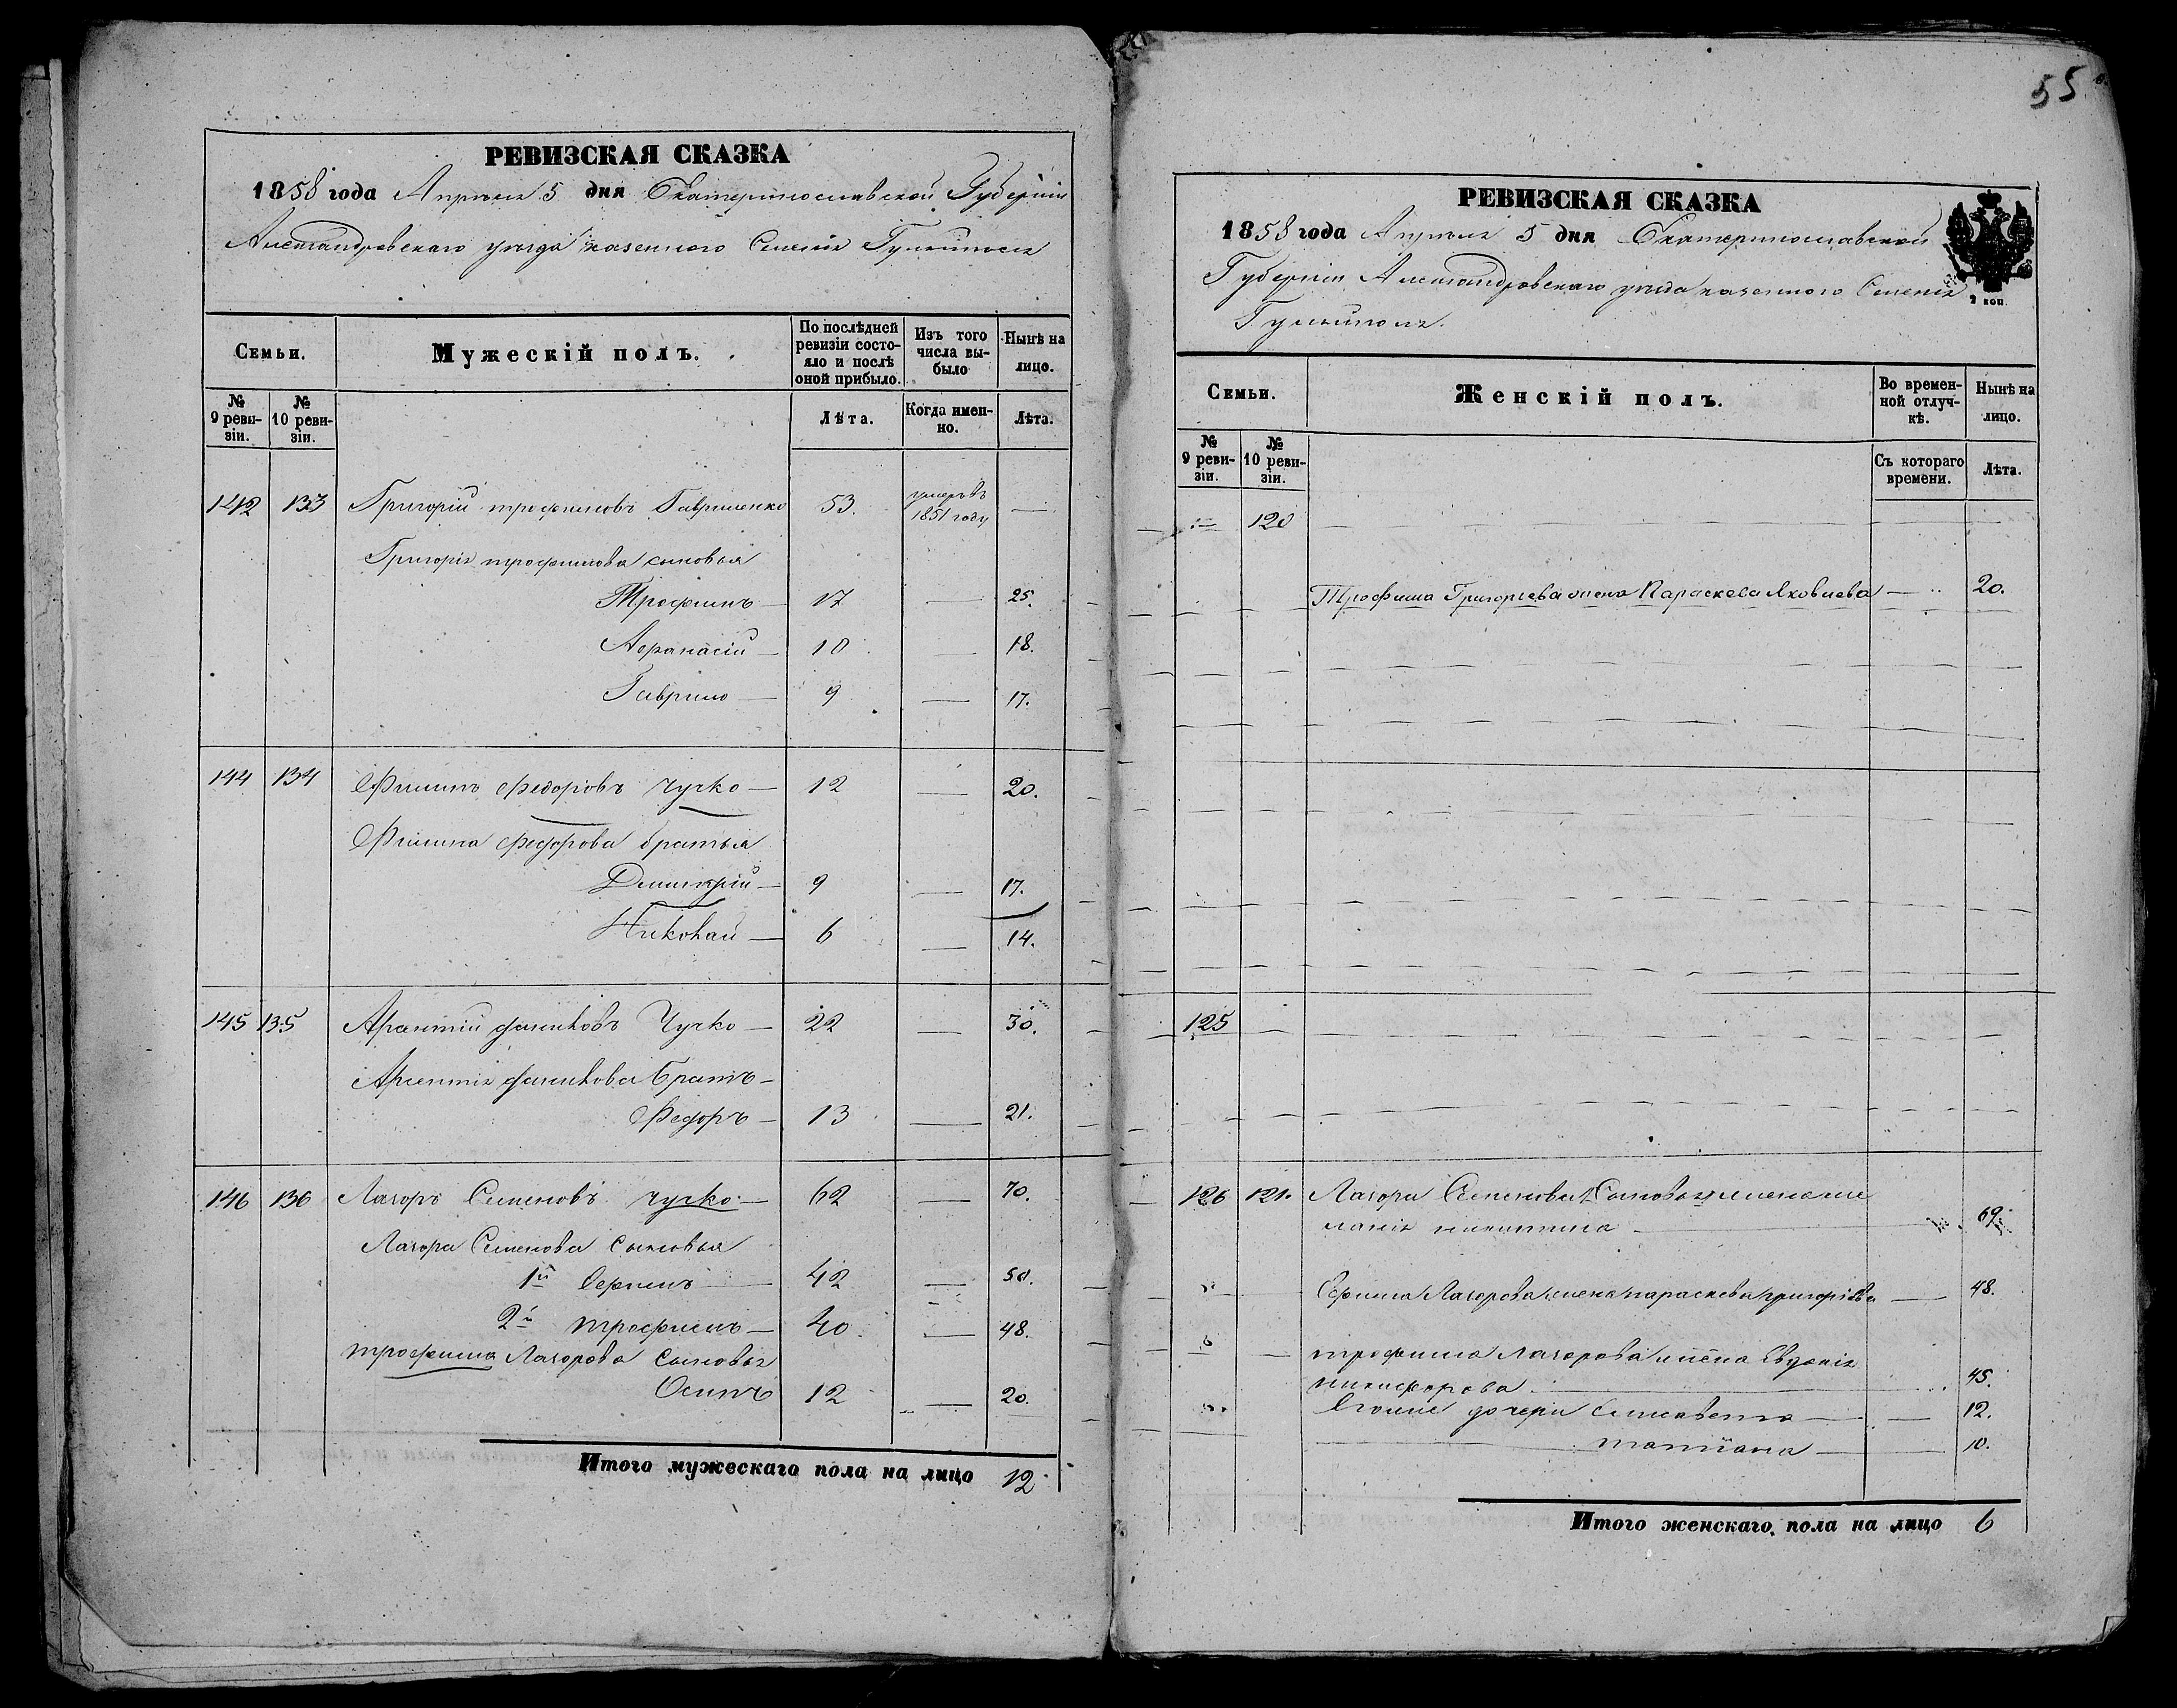 РЕВИЗСКАЯ СКАЗКА
1858 года Апреля 5 дня Екатеринославской Губернии
Александровскаго уезда казенного Селения Гуляйполя
Семьи.
Мужескій полъ.
По послѣдней ревизіи состояло и послѣ оной прибыло.
Изъ того числа выбыло
Нынѣ на лицо.
№ 9 ревизіи.
№ 10 ревизіи.
Лѣта.
Когда именно.
Лѣта.
142 133 Григорій трофимовъ Гавриленко 53. умеръ въ 1851 году —
Григорія трофимова сыновья
Трофимъ — 17 — 25.
Афанасій — 10 — 18.
Гаврило — 9 — 17.
144 134 Филипъ Федоровъ Чучко — 12 — 20.
Филипа Федорова братья
Дмитрій — 9 — 17.
Николай — 6 — 14.
145 135 Арсентій Чучко — 22 — 30.
Арсентія Братъ —
Федоръ — 13 — 21.
146 136 Лазоръ Семеновъ Чучко — 62 — 70.
Лазора Семенова Сыновья
1й Ефимъ — 42 — 50.
2й трофимъ — 40 — 48.
трофима Лазорова Сыновья
Осипъ 12 — 20.
Итого мужескаго пола на лицо 12
55
РЕВИЗСКАЯ СКАЗКА
1858 года Апреля 5 дня Екатеринославской
Губернии Александровскаго уезда казенного Селения
Гуляйполя.
2 коп.
Семьи.
Женскій полъ.
Во временной отлучкѣ.
Нынѣ на лицо.
№ 9 ревизіи.
№ 10 ревизіи.
Съ котораго времени.
Лѣта.
120
Трофима Григорьева жена Параскева Яковлева — 20.
125
126 121. Лазора Семенова жена
никитина — 69
Ефима Лазорова жена параскева григорьева — 48.
трофима лазорова жена Евдокія
никифорова — 45.
Его дочери Елисавета — 12.
татіана — 10.
Итого женскаго пола на лицо 6